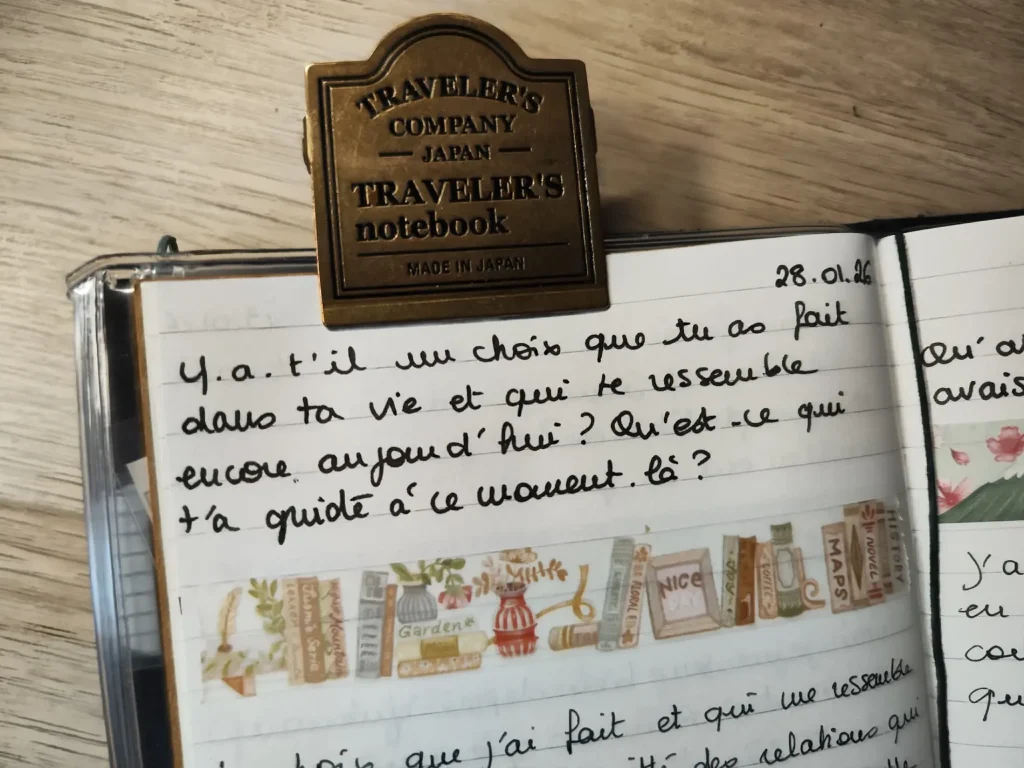 TRAVELER'S
COMPANY
JAPAN
TRAVELER'S
notebook
MADE IN JAPAN
28.01.26
Y.a.t'il un choix que tu as fait
dans ta vie et qui te ressemble
encore aujourd'hui ? Qu'est-ce qui
t'a guidé à ce moment.là ?
Garden
FLORAL
NICE
MAPS
NOVEL
HISTORY
choix que j'ai fait et qui me ressemble
des relations qui
Qu'a
avais
J'a
en